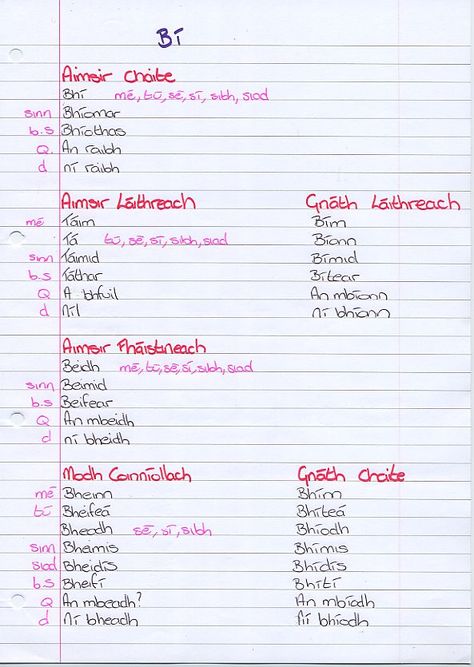 Bí
Aimsir Chaite
Bhí mé, tú, sé, sí, sibh, siad
sinn Bhíomar
b.s Bhíothas
Q. An raibh
d ní raibh
Aimsir Láithreach Gnáth Láithreach
mé Táim Bím
Tá tú, sé, sí, sibh, siad Bíonn
sinn Táimid Bímid
b.s Táthar Bítear
Q A bhfuil An mbíonn
d níl ní bhíonn
Aimsir Fháistineach
Beidh mé, tú, sé, sí, sibh, siad
sinn Beimid
b.s Beifear
Q An mbeidh
d ní bheidh
Modh Coinníollach Gnáth Chaite
mé Bheinn Bhínn
tú Bheifeá Bhíteá
Bheadh sé, sí, sibh Bhíodh
sinn Bheimis Bhímis
siad Bheidís Bhídís
b.s Bheifí Bhítí
Q An mbeadh? An mbíodh
d ní bheadh ní bhíodh